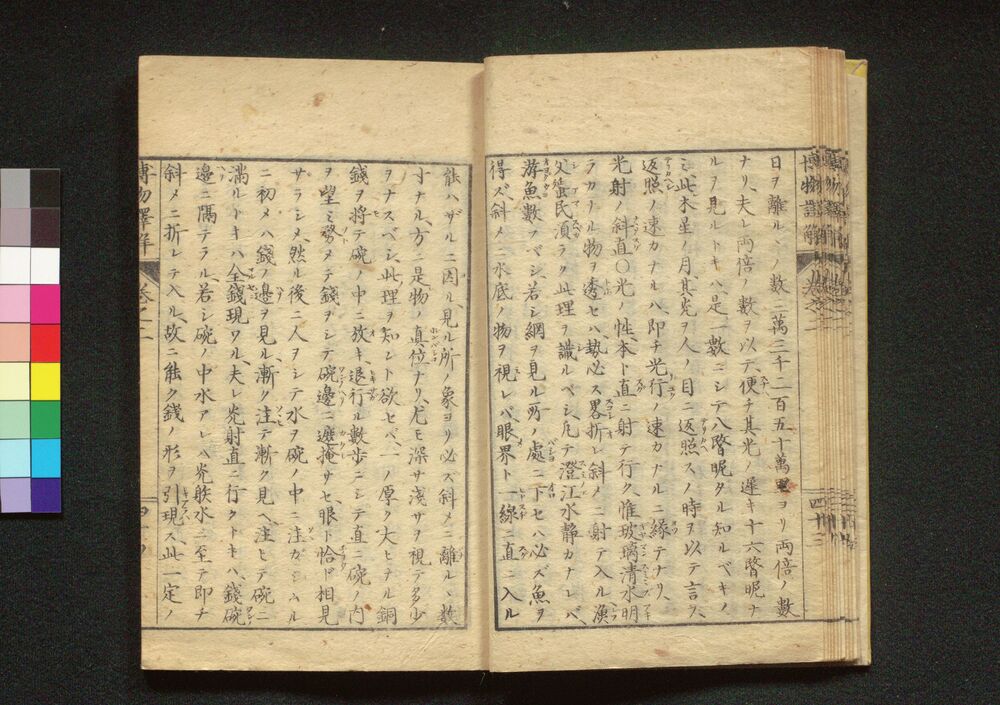 日ヲ離ルヽノ數二萬三千二百五十萬里ヨリ両倍ノ數
ナリ、夫レ両倍ノ數ヲ以テ、便チ其光ノ遅キ十六瞥眤ナ
ルヲ見ルトキハ、是一數ニシテ八瞥眤タル知ルベキノ
ミ、此、木星ノ月、其光ヲ人ノ目ニ返照スノ時ヲ以テ言ヲ、
返照ノ速カナルハ、即チ光行ノ速カナルニ縁テナリ、
光射ノ斜直〇光ノ性、本ト直ニ射テ行ク、惟玻璃清水明
ラカナル物ヲ透セハ、勢必ス畧折レ斜メニ射テ入ル、漁
父蜑民須ラク此理ヲ識ルベシ、凡テ澄江水静カナレバ、
游魚數ノベシ、若シ網ヲ見ル所ノ處ニ下セハ必ズ魚ヲ
得ズ、斜メニ水底ノ物ヲ視レバ、眼界ト一線ニ直ニ入ル
能ハザルニ因ル、見ル所ノ象ヨリ必ズ斜メニ離ルヽ數
寸ナル、方ニ是物ノ真位ナリ、尤モ深サ淺サヲ視テ多少
ヲナスベシ、此理ヲ知ント欲セバ、一ノ厚ク大ヒナル銅
錢ヲ将テ碗ノ中ニ放キ、退行ル數歩ニシテ直ニ碗ノ内
ヲ望ミ、務メテ錢ヲシテ碗邊ニ遮掩サセ、眼ト恰ド相見
サラシメ、然ル後ニ人ヲシテ水ヲ碗ノ中ニ注ガシムル
ニ初メハ錢ノ邊ヲ見ル、漸ク注テ漸ク見ヘ、注ヒテ碗ニ
満ルトキハ全錢現ワル、夫レ光射直ニ行クトキハ、錢碗
邊ニ隔テラル、若シ碗ノ中水アレハ光躲水ニ至テ即チ
斜メニ折レテ入ル、故ニ能ク錢ノ形ヲ引現ス、此一定ノ
博物譯解 巻之二